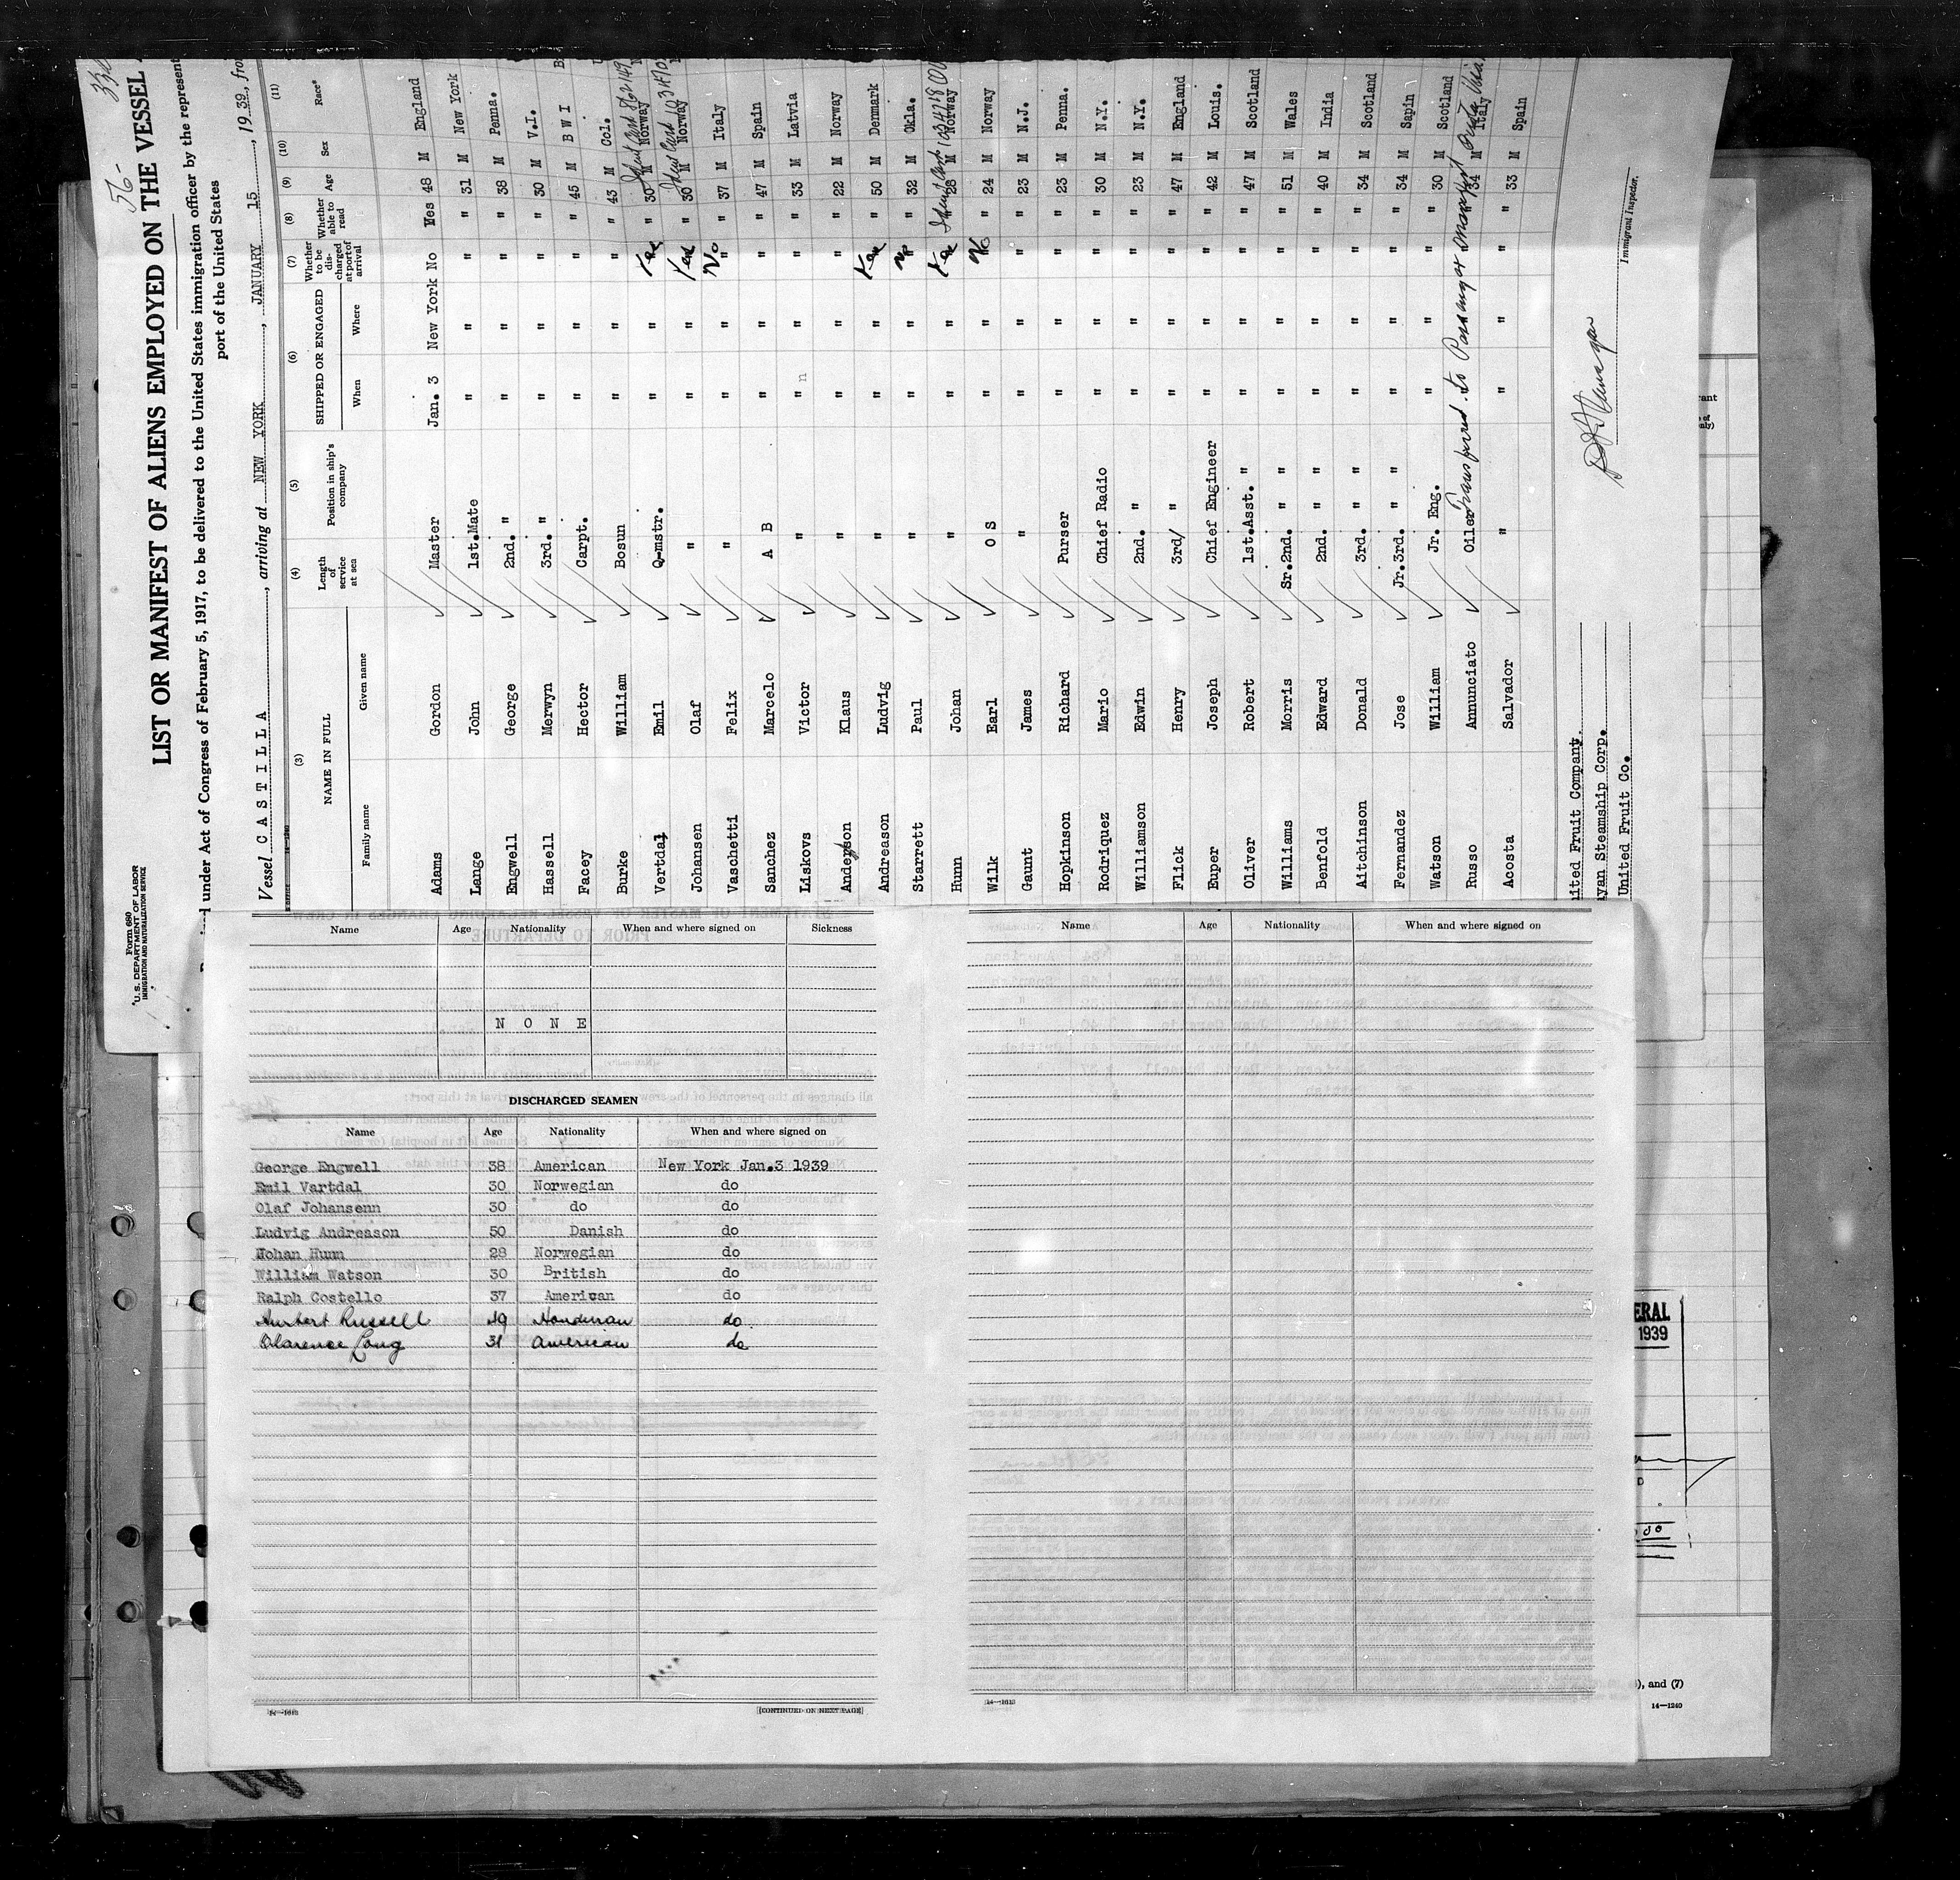 56-
Form 680
U.S. DEPARTMENT OF LABOR
IMMIGRATION AND NATURALIZATION SERVICE
LIST OR MANIFEST OF ALIENS EMPLOYED ON THE VESSEL
under Act of Congress of February 5, 1917, to be delivered to the United States immigration officer by the represent
port of the United States
Vessel CASTILLA, arriving at NEW YORK, JANUARY 15, 1939, from
(3) (4) (5) (6) (7) (8) (9) (10) (11)
NAME IN FULL Length of service at sea Position in ship's company SHIPPED OR ENGAGED Whether to be discharged at port of arrival Whether able to read Age Sex Race*
Family name Given name When Where
Adams Gordon Master Jan. 3 New York No Wes 48 M England
Lange John 1st.Mate " " " " 31 M New York
Engwell George 2nd. " " " " " 38 M Penna.
Hassell Merwyn 3rd. " " " " " 30 M V.I.
Facey Hector Carpt. " " " " 45 M B W I
Burke William Bosun " " " " 43 M Col.
Vertdal Emil Q-mstr. " " Yes " 30 M Norway
Johansen Olaf " " " Yes " 30 M Norway
Vaschetti Felix " " " No " 37 M Italy
Sanchez Marcelo A B " " " " 47 M Spain
Liskovs Victor " " " " " 33 M Latvia
Anderson Klaus " " " " " 22 M Norway
Andreason Ludvig " " " Yes " 50 M Denmark
Starrett Paul " " " No " 32 M Okla.
Hunn Johan " " " Yes " 28 M Norway
Wilk Earl O S " " No " 24 M Norway
Gaunt James " " " " " 23 M N.J.
Hopkinson Richard Purser " " " " 23 M Penna.
Rodriquez Mario Chief Radio " " " " 30 M N.Y.
Williamson Edwin 2nd. " " " " " 23 M N.Y.
Flick Henry 3rd/ " " " " " 47 M England
Euper Joseph Chief Engineer " " " " 42 M Louis.
Oliver Robert 1st.Asst. " " " " " 47 M Scotland
Williams Morris Sr.2nd. " " " " " 51 M Wales
Benfold Edward 2nd. " " " " " 40 M India
Aitchinson Donald 3rd. " " " " " 34 M Scotland
Fernandez Jose Jr.3rd. " " " " " 34 M Sapin
Watson William Jr. Eng. " " " " 30 M Scotland
Russo Annunciato Oiler Transferred to Passenger manifest 34 M Italy
Acosta Salvador " " " " " 33 M Spain
nited Fruit Company.
yan Steamship Corp.
United Fruit Co.
Immigrant Inspector.
Name Age Nationality When and where signed on Sickness
N O N E
DISCHARGED SEAMEN
Name Age Nationality When and where signed on
George Engwell 38 American New York Jan.3 1939
Emil Vartdal 30 Norwegian do
Olaf Johansenn 30 do do
Ludvig Andreason 50 Danish do
Nohan Hunn 28 Norwegian do
William Watson 30 British do
Ralph Costello 37 American do
Hurbert Russell 49 Honduran do.
Clarence Long 31 American do
14—1613
[CONTINUED ON NEXT PAGE]
Name Age Nationality When and where signed on
14—1613
ERAL
1939
), and (7)
14—1240